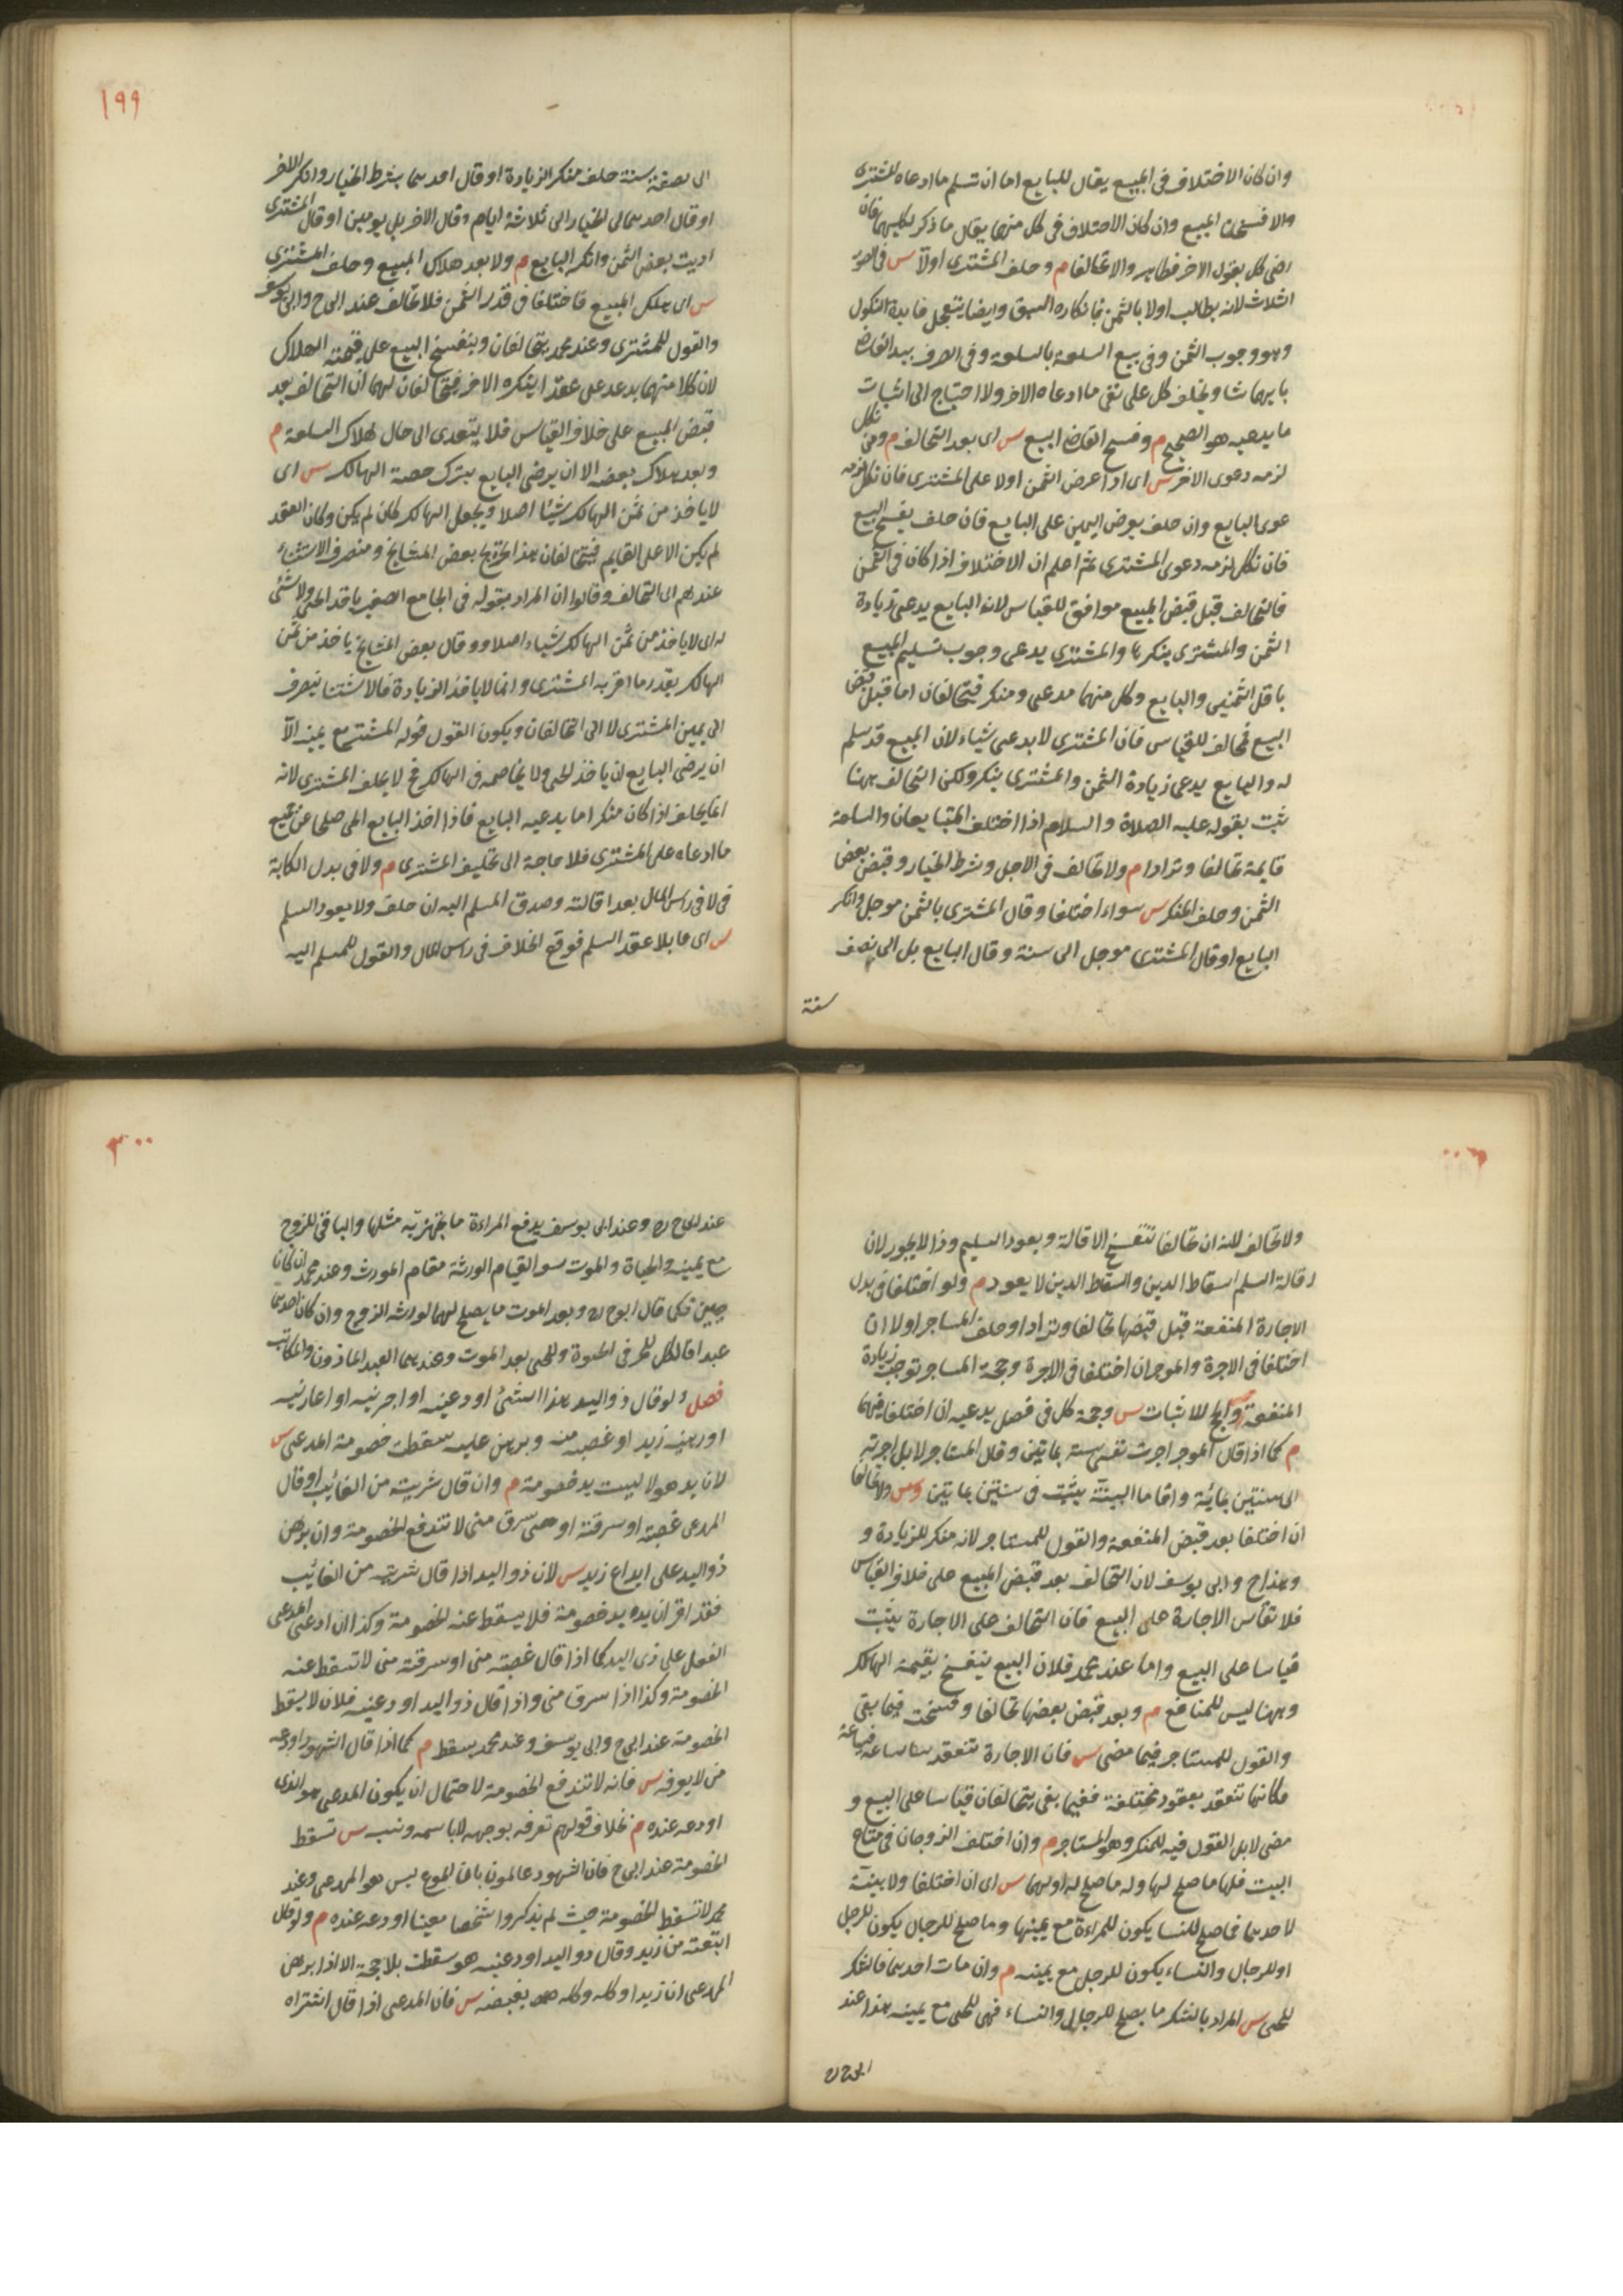 وان كان الاختلاف فى المبيع يقال للبايع اما ان تسلم ما ادعاه المشترى
والا فسخنا البيع وان كان الاختلاف فى كل منهما يقال ما ذكر لكليهما فان
رضى كل بقول الاخر فظاهر والا تحالفا م وحلف المشترى اولا س فى الصور
الثلاث لانه يطالب اولا بالثمن فانكاره اسبق وايضا يتعجل فايدة النكول
وهو وجوب الثمن وفى بيع السلعة بالسلعة وفى الصرف يبدا القاضى
بايهما شا ويحلف كل على نفى ما ادعاه الاخر ولا احتياج الى اثبات
ما يدعيه هو الصحيح م وفسخ القاضى البيع س اى بعد التحالف م ومن نكل
لزمه دعوى الاخر س اى اذا عرض الثمن اولا على المشترى فان نكل لزمه
عوى البايع وان حلف يعرض اليمين على البايع فان حلف يفسخ البيع
فان نكل لزمه دعوى المشترى ثم اعلم ان الاختلاف اذا كان فى الثمن
فالتحالف قبل قبض المبيع موافق للقياس لان البايع يدعى زيادة
الثمن والمشترى ينكرها والمشترى يدعى وجوب تسليم المبيع
باقل الثمنين والبايع وكل منهما مدعى ومنكر فيتحالفان اما قبل قبض
البيع فمخالف للقياس فان المشترى لا يدعى شياء لان المبيع قد سلم
له والبايع يدعى زيادة الثمن والمشترى ينكر ولكن التحالف ههنا
ثبت بقوله عليه الصلاة والسلام اذا اختلف المتبايعان والسلعة
قايمة تحالفا وترادا م ولا تحالف فى الاجل وشرط الخيار وقبض بعض
الثمن وحلف المنكر س سواء اختلفا وقال المشترى بالثمن موجل وانكر
البايع او قال المشترى موجل الى سنة وقال البايع بل الى نصف
سنة
١٩٩
الى نصف سنة حلف منكر الزيادة او قال احدهما بشرط الخيار وانكر الاخر
او قال احدهما لى الخيار الى ثلاثة ايام وقال الاخر بل يومين او قال المشترى
اديت بعض الثمن وانكر البايع م ولا بعد هلاك المبيع وحلف المشترى
س اى هلك المبيع فاختلفا فى قدر الثمن فلا تحالف عند ابى ح وابى يوسف
والقول للمشترى وعند محمد يتحالفان وينفسخ البيع على قيمة الهلاك
لان كلا منهما يدعى على عقد اينكره الاخر فيتحالفان لهما ان التحالف بعد
قبض المبيع على خلاف القياس فلا يتعدى الى حال هلاك السلعة م
وبعد هلاك بعضه الا ان يرضى البايع بترك حصة الهالك س اى
لا ياخذ من ثمن الهالك شيئا اصلا ويجعل الهالك كان لم يكن وكان العقد
لم يكن الا على القايم فيتحالفان هذا تخريج بعض المشايخ ومنصرف الاستثناء
عندهم الى التحالف وقالوا ان المراد بقوله فى الجامع الصغير ياخذ الحى ولا شئ
له اى لا ياخذ من ثمن الهالك شياء اصلا ووقال بعض المشايخ ياخذ من ثمن
الهالك بقدر ما اقر به المشترى وانما لا ياخذ الزيادة فالاستثنا ينصرف
الى يمين المشترى لا الى التحالفان ويكون القول قوله المشترى مع يمينه الا
ان يرضى البايع ان ياخذ الحى ولا يخاصمه فى الهالك فح لا يحلف المشترى لانه
انما يحلف اذا كان منكرا ما يدعيه البايع فاذا اخذ البايع الحى صلحا عن جميع
ما ادعاه على المشترى فلا حاجة الى تحليف المشترى م ولا فى بدل الكتابة
فى لا فى راس المال بعد اقالته وصدق المسلم اليه ان حلف ولا يعود السلم
س اى ما بلا عقد السلم فوقع الخلاف فى راس المال والقول للمسلم اليه
ولا تحالف لانه ان تحالفا تنفسخ الاقالة ويعود السليم وذا لا يجوز لان
اقالة السلم اسقاط الدين والسقاط الدين لا يعود م ولو اختلفا فى بدل
الاجارة المنفعة قبل قبضها تحالفا وترادا وحلف المستاجر اولا ان
اختلفا فى الاجرة والموجر ان اختلفا فى الاجرة وحجة المستاجر توجب زيادة
المنفعة للاثبات س وحجة كل فى فصل يدعيه ان اختلفا فيهما
م كما اذا قال الموجر اجرت سنة بمايتين وقال المستاجر لا بل اجرته
الى سنتين بمائة واقاما البينة يثبت فى سنتين بمايتين ولا تحالفا
ان اختلفا بعد قبض المنفعة والقول للمستاجر لانه منكر للزيادة و
وهذا ح وابى يوسف لان التحالف بعد قبض المبيع على خلاف القياس
فلا تقاس الاجارة على البيع فان التحالف على الاجارة يثبت
قياسا على البيع واما عند محمد فلان البيع ينفسخ بقيمة الهالك
وههنا ليس للمنافع م وبعد قبض بعضها تحالفا وفسخت فيما بقى
والقول للمستاجر فيما مضى س فان الاجارة تنعقد ساعة فساعة
فكانما تنعقد بعقود مختلفة ففيما بقى يتحالفان قياسا على البيع و
مضى لا بل القول فيه للمنكر وهو المستاجر م وان اختلف الزوجان فى متاع
البيت فلها ما صلح لها وله ما صلح له اولهما س اى ان اختلفا ولا بينة
لاحدهما فما صلح للنسا يكون للمراءة مع يمينها وما صلح للرجال يكون للرجل
او للرجال والنساء يكون للرجل مع يمينه م وان مات احدهما فالمشكر
للحى س المراد بالمشكر ما يصلح للرجال والنساء فهى للحى مع يمينه هذا عند
ابى ح ره
٢٠٠
عند ابى ح ره وعند ابى يوسف يدفع المراءة ما يجهز به مثلها والباقى للزوج
مع يمينه والحياة والموت سوا لقيام الورثة مقام المورث وعند محمد ان كانا
حيين فكما قال ابو ح ره وبعد الموت ما يصلح لهما لورثه الزوج وان كان احدهما
عبدا فالكل للحر فى الحيوة وللحى بعد الموت وعندهما العبد الماذون والمكاتب
فصل ولو قال ذو اليد هذا الشئ اودعنيه او اجرنيه او اعارنيه
او رهنيه زيد او غصبه منه وبرهن عليه سقطت خصومة المدعى س
لان يد هولا ليست يد خصومة م وان قال شريته من الغائب او قال
المدعى غصبته او سرقته او حتى سرق منى لا تندفع الخصومة وان برهن
ذو اليد على ايداع زيد س لان ذو اليد اذا قال شريته من الغائب
فقد اقر ان يده يد خصومة فلا يسقط عنه الخصومة وكذا ان ادعى المدعى
الفعل على ذى اليد كما اذا قال غصبته منى او سرقته منى لا تسقط عنه
الخصومة وكذا اذا سرق منى واذا قال ذو اليد اودعنيه فلان لا يسقط
الخصومة عند ابى ح وابى يوسف وعند محمد يسقط م كما اذا قال الشهود اودعه
من لا يعرفه س فانه لا تندفع الخصومة لاحتمال ان يكون المدعى هو الذى
اودعه عنده م بخلاف قولهم نعرفه بوجهه لا باسمه ونسب س تسقط
الخصومة عند ابى ح فان الشهود عالمون بان المودع ليس هو المدعى وعند
محمد لا تسقط الخصومة حيث لم يذكروا شخصا معينا اودعه عنده م ولو قال
ابتعته من زيد وقال ذو اليد اودعنيه هو سقطت بلا حجة الا اذا برهن
المدعى ان زيدا وكله وكله بقبضه س فان المدعى اذا قال اشتراه